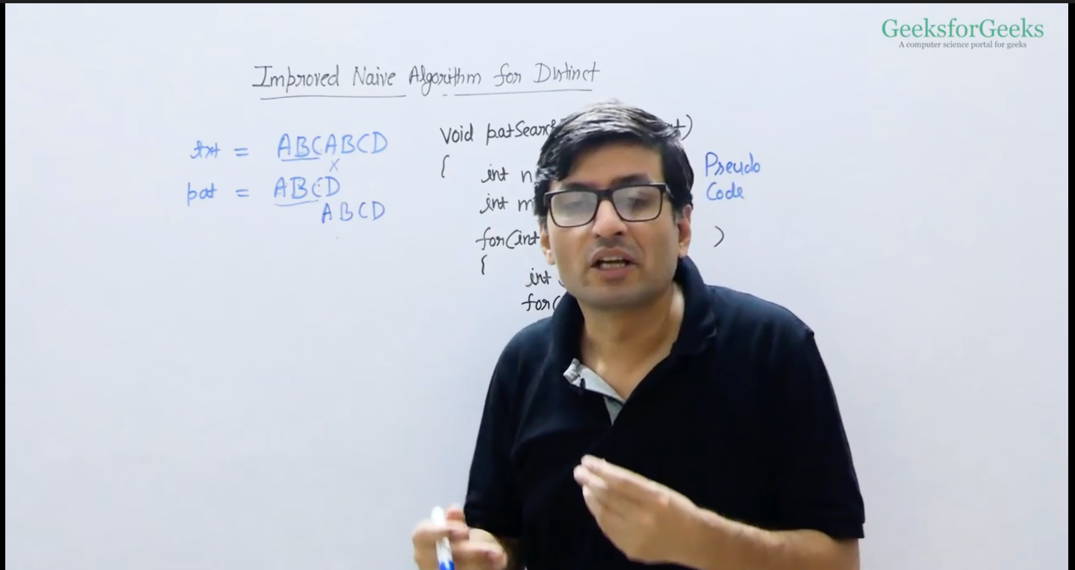 GeeksforGeeks
A computer science portal for geeks
Improved Naive Algorithm for Distinct
txt = ABCABCD
x
pat = ABCD
ABCD
void patSear
t)
{
int n
int m
for(int
)
{
int
for(
Pseudo
Code